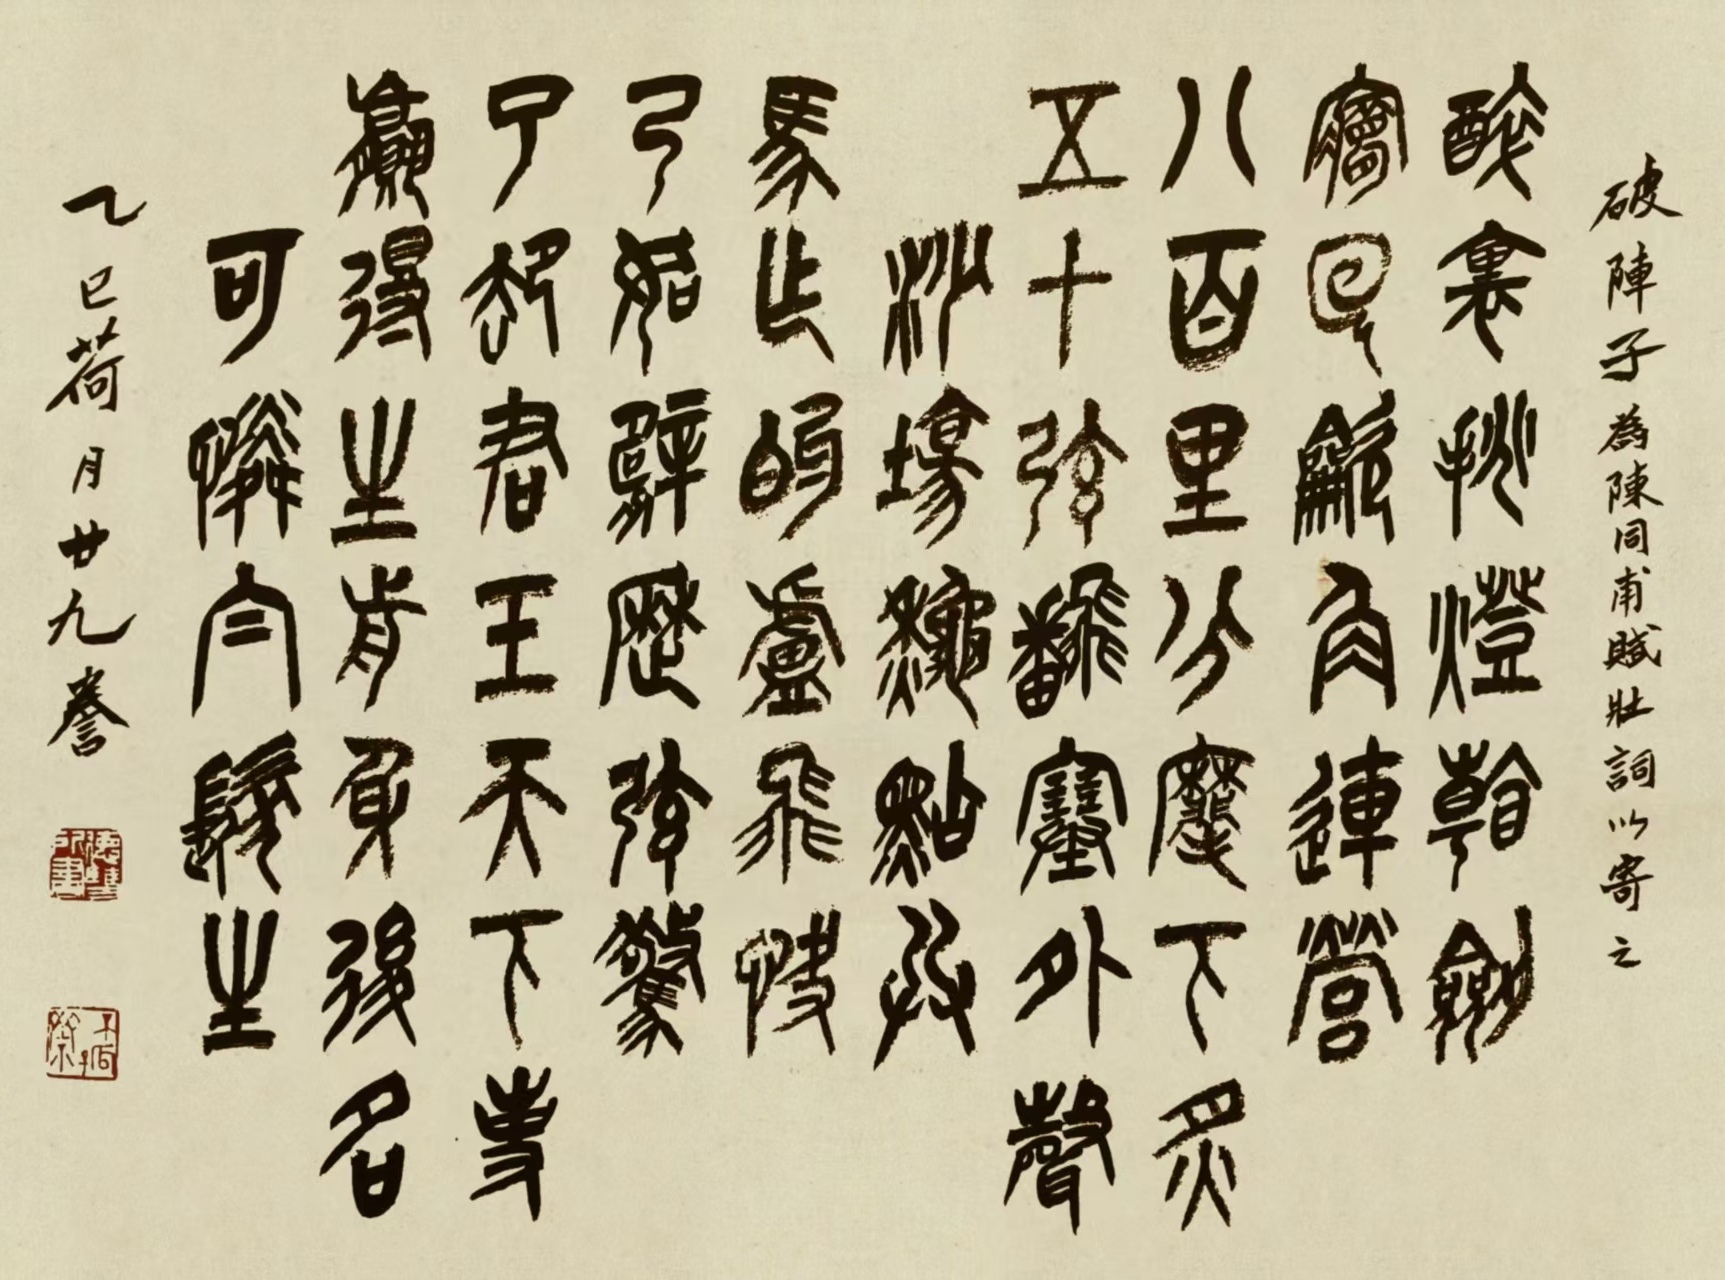 破陣子為陳同甫賦壯詞以寄之
醉裏挑燈看劍
夢回龡角連營
八百里分麾下炙
五十弦飜塞外聲
沙場龝點兵
馬乍的盧飛快
弓如辟歷弦驚
了卻君王天下事
贏得生前身後名
可憐白髮生
乙巳荷月廿九誊